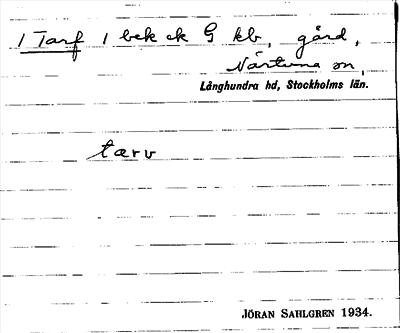 1 Tarf 1 bek ck G kb, gård,
Närtuna sn,
Långhundra hd, Stockholms län.
tærv
JÖRAN SAHLGREN 1934.